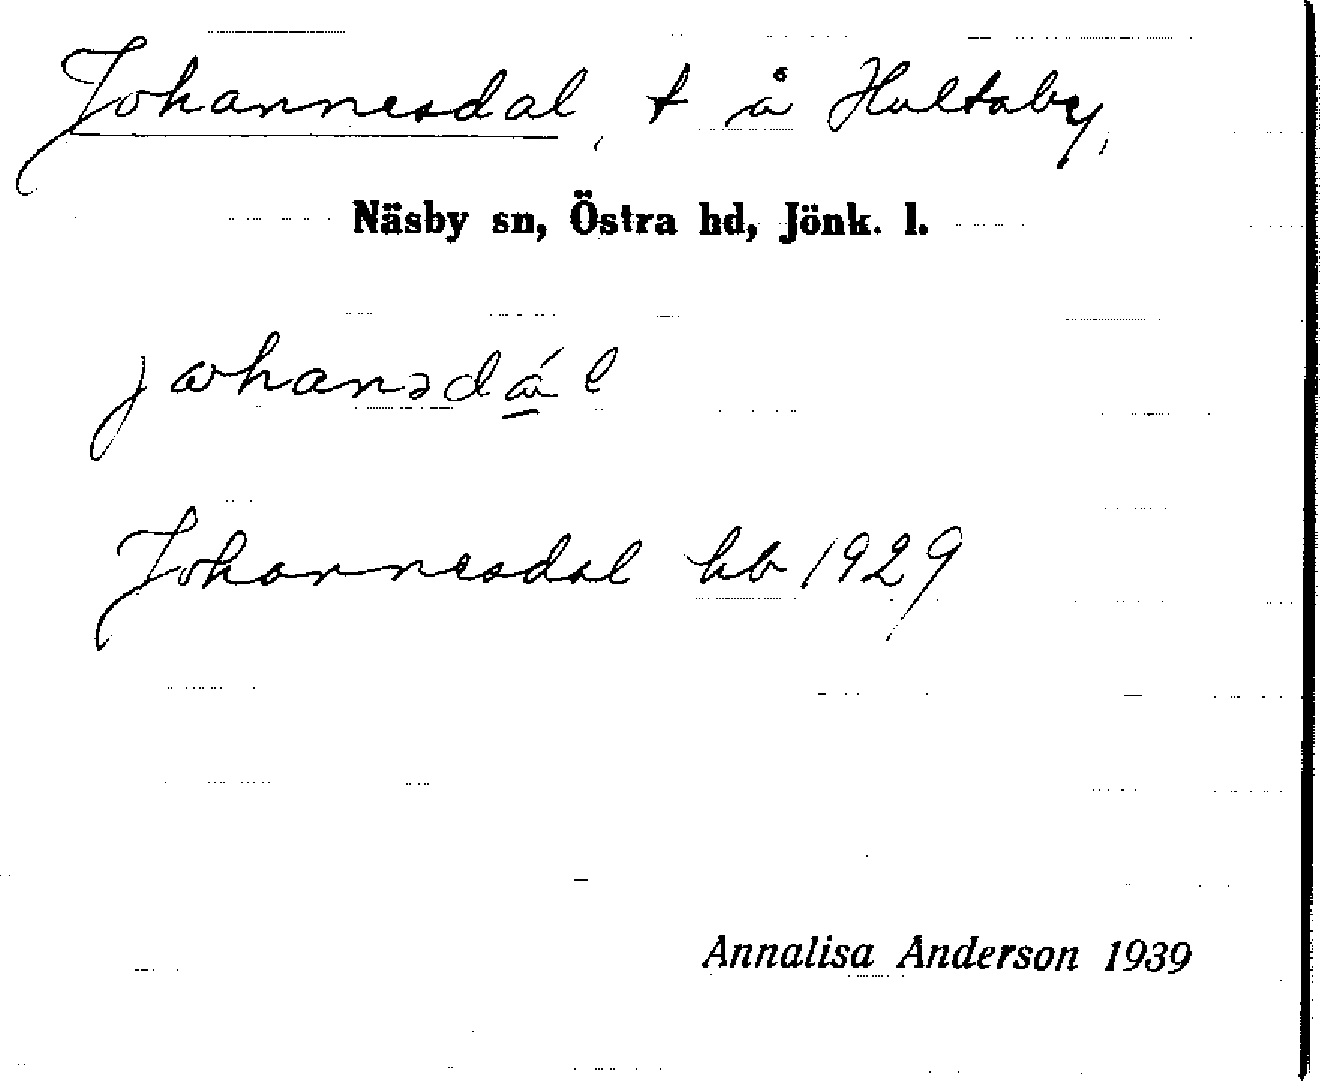 Johannesdal, t å Hultaby,
Näsby sn, Östra hd, Jönk. l.
johanədá̱l
Johannesdal hb 1929
Annalisa Anderson 1939